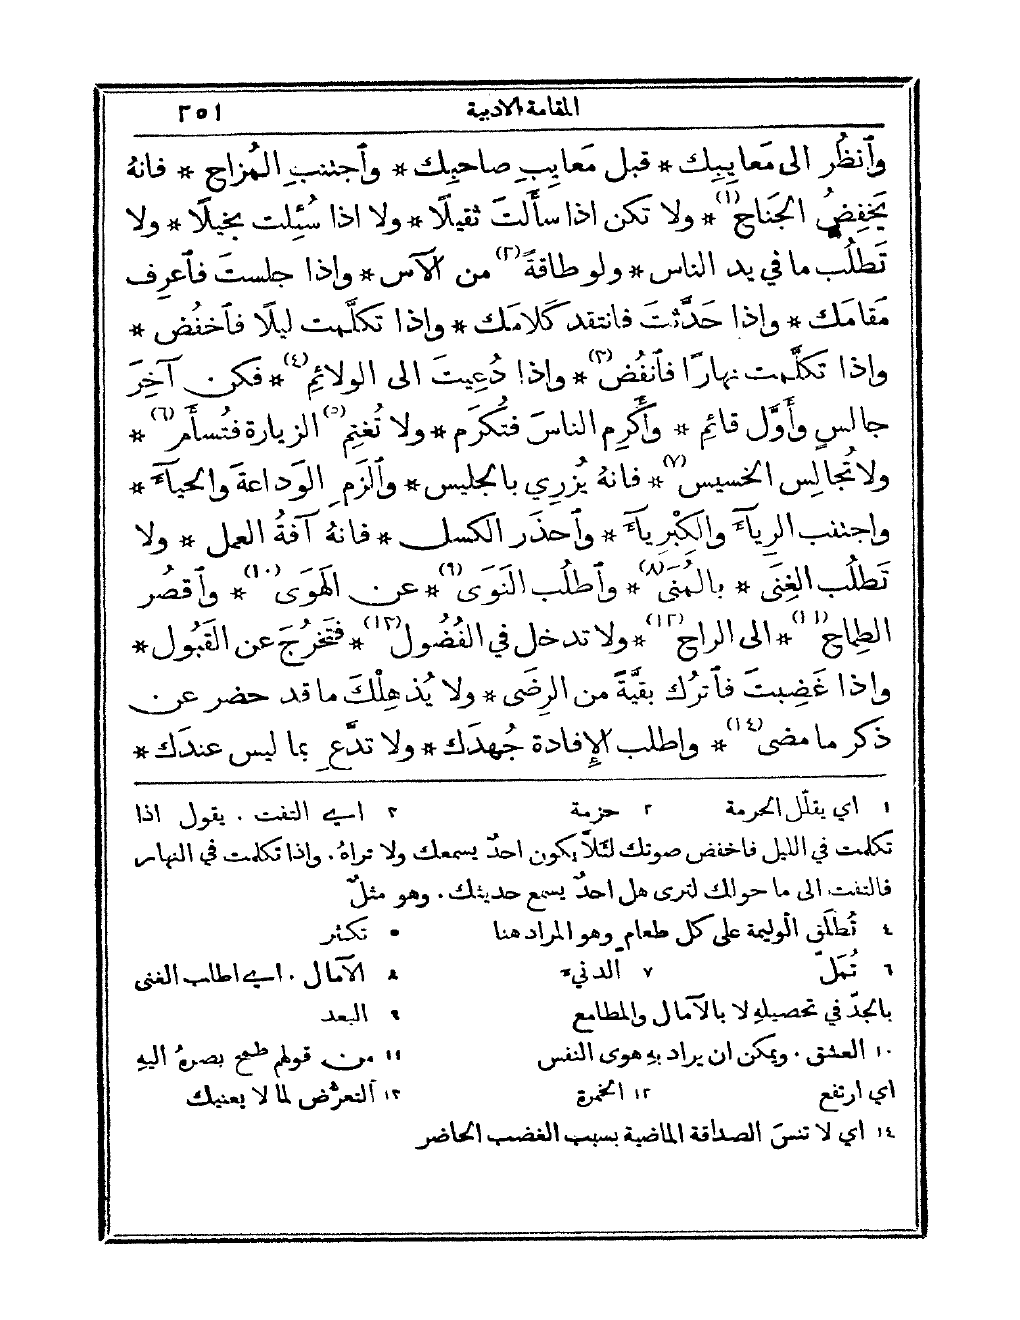 المقامة الادبية ٢٥١
وٱنظُر الى مَعايِبِك * قبل مَعايِبِ صاحبِك * وٱجتنبِ المُزاح * فانهُ
يَخفِضُ الجَناح(١) * ولا تكن اذا سأَلتَ ثقيلًا * ولا اذا سُئِلت بخيلًا * ولا
تَطلُب ما في يد الناس * ولو طاقةً(٢) من الآس * واذا جلستَ فٱعرِف
مَقامَك * واذا حَدَّثتَ فانتقد كَلامَك * واذا تكلَّمت ليلًا فٱخفُض *
واذا تكلَّمت نهارًا فٱنفُض(٣) * واذا دُعِيتَ الى الولائِم(٤) * فكن آخِرَ
جالسٍ وأَوَّل قائِم * وأَكرِم الناسَ فتُكرَم * ولا تُغتِمِ(٥) الزيارة فتُسأَم(٦) *
ولا تُجالِس الخسيس(٧) * فانهُ يُزرِي بالجليس * وٱلزَمِ الوَداعةَ والحيآءَ *
واجتنب الرِيآءَ والكِبْرِيآءَ * وٱحذَر الكسل * فانهُ آفةُ العمل * ولا
تَطلُب الغِنَى * بالمُنَى(٨) * وٱطلُب النَوَى(٩) * عن الهَوَى(١٠) * وٱقصُر
الطِماح(١١) * الى الراح(١٢) * ولا تدخل في الفُضُول(١٣) * فتَخرُجَ عن القَبُول *
واذا غَضِبتَ فٱترُك بقيَّةً من الرِضَى * ولا يُذهِلْكَ ما قد حضر عن
ذكر ما مضى(١٤) * واطلب الإفادة جُهدَك * ولا تدَّعِ بما ليس عندَك *
١ اي يقلّل الحرمة ٢ حزمة ٣ اي التفت . يقول اذا
تكلمت في الليل فاخفض صوتك لئلَّا يكون احدٌ يسمعك ولا تراهُ . واذا تكلمت في النهار
فالتفت الى ما حولك لترى هل احدٌ يسمع حديثك . وهو مثلٌ
٤ تُطلَق الوليمة على كل طعام وهو المراد هنا ٥ تكثر
٦ تُمَلّ ٧ الدنيء ٨ الآمال . اي اطلب الغنى
بالجدّ في تحصيلهِ لا بالآمال والمطامع ٩ البعد
١٠ العشق . ويمكن ان يراد به هوى النفس ١١ من قولهم طمح بصرهُ اليهِ
اي ارتفع ١٢ الخمرة ١٣ التعرُّض لما لا يعنيك
١٤ اي لا تنسَ الصداقة الماضية بسبب الغضب الحاضر